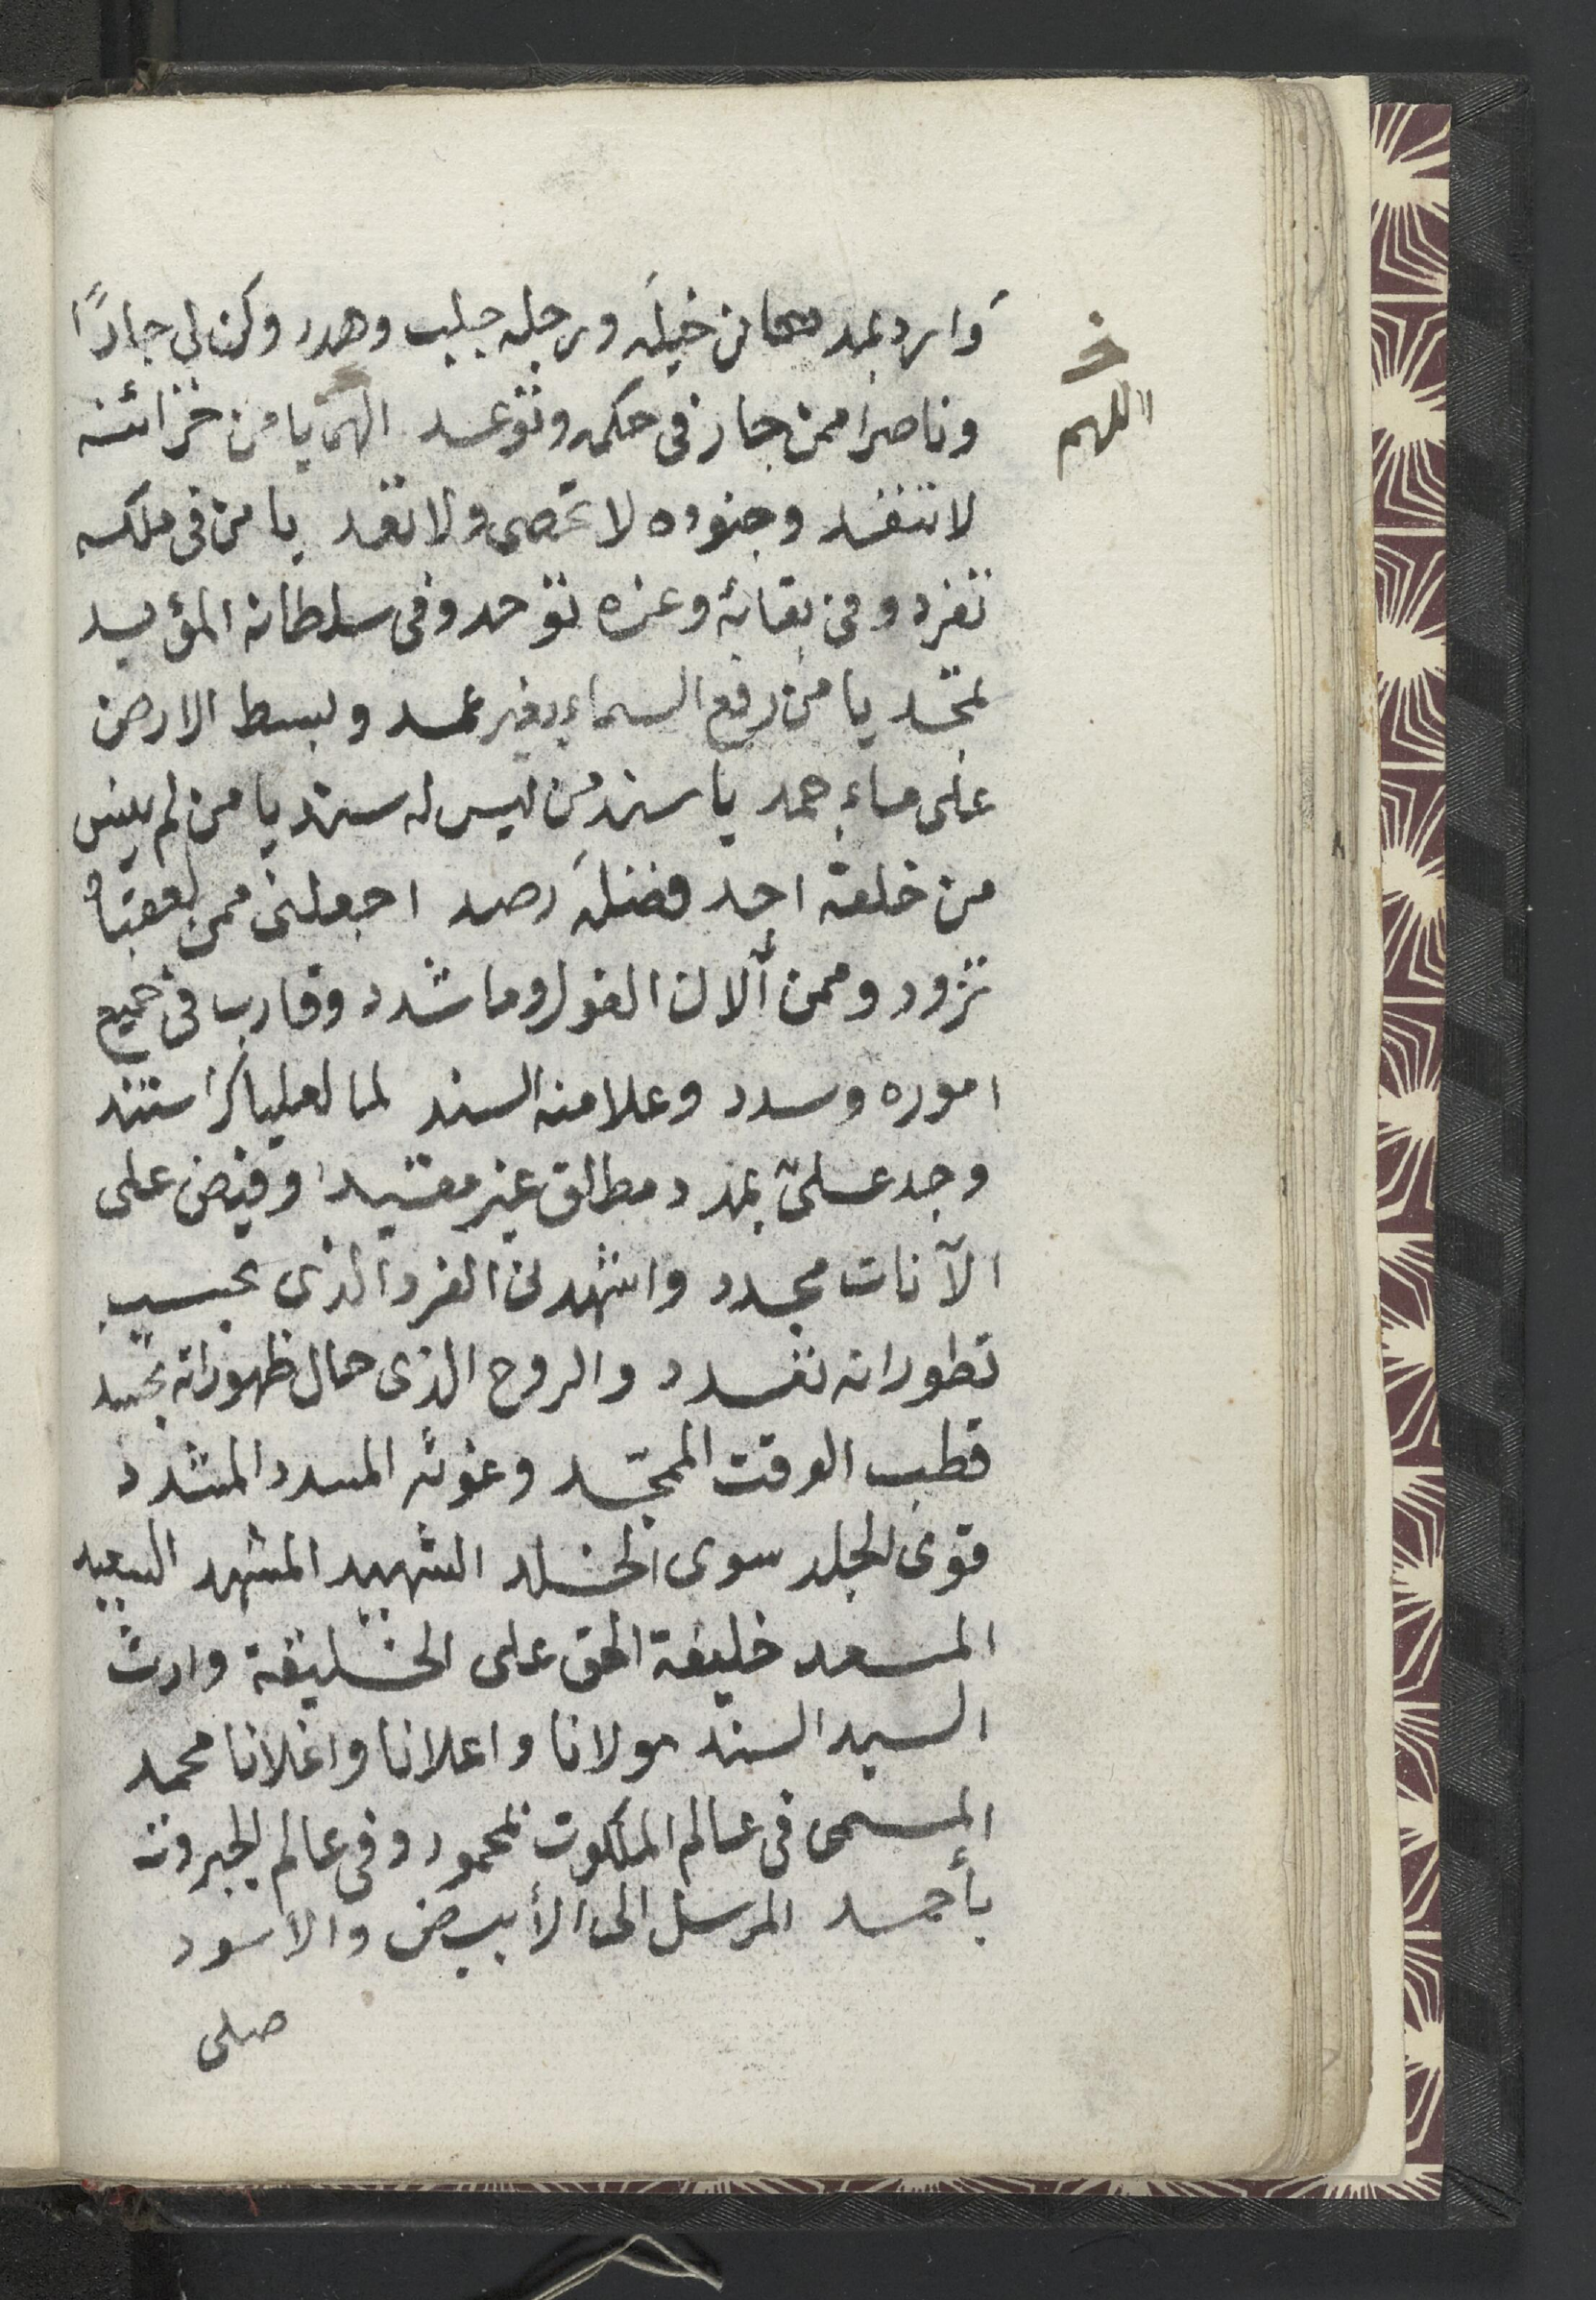 وارد بمدد من خيله ورجله جلب وهدد وكن لي جارًا
وناصرا ممن جار في حكمه وتوعد الهي يا من خزائنه
اللهم
لا تنفد وجنوده لا تحصى ولا تعد يا من في ملكه
تفرد وفي بقائه وعزه توحد وفي سلطانه المؤيد
تمجد يا من رفع السماء بغير عمد وبسط الارض
على ماء جمد يا سند من ليس له سند يا من لم ينس
من خلقه احد فضله رصد اجعلني ممن لعقباه
تزود وممن ألان القول وما شدد وقارب في جميع
اموره وسدد وعلا منه السند لما لعلياك استند
وجد علىّ بمدد مطلق غير مقيد وفيض على
الآنات مجدد واشهدني الفرد الذي بحسب
تطوراته تعدد والروح الذي حال ظهوراته تجسد
قطب الوقت الممجّد وغوثه المسدد المشدد
قوى الجلد سوى الخلد الشهيد المشهد السعيد
المسعد خليفة الحق على الخليقة وارث
السيد السند مولانا واعلانا واغلانا محمد
المسمى في عالم الملكوت بمحمود وفي عالم الجبروت
بأحمد المرسل الى الأبيض والاسود
صلى